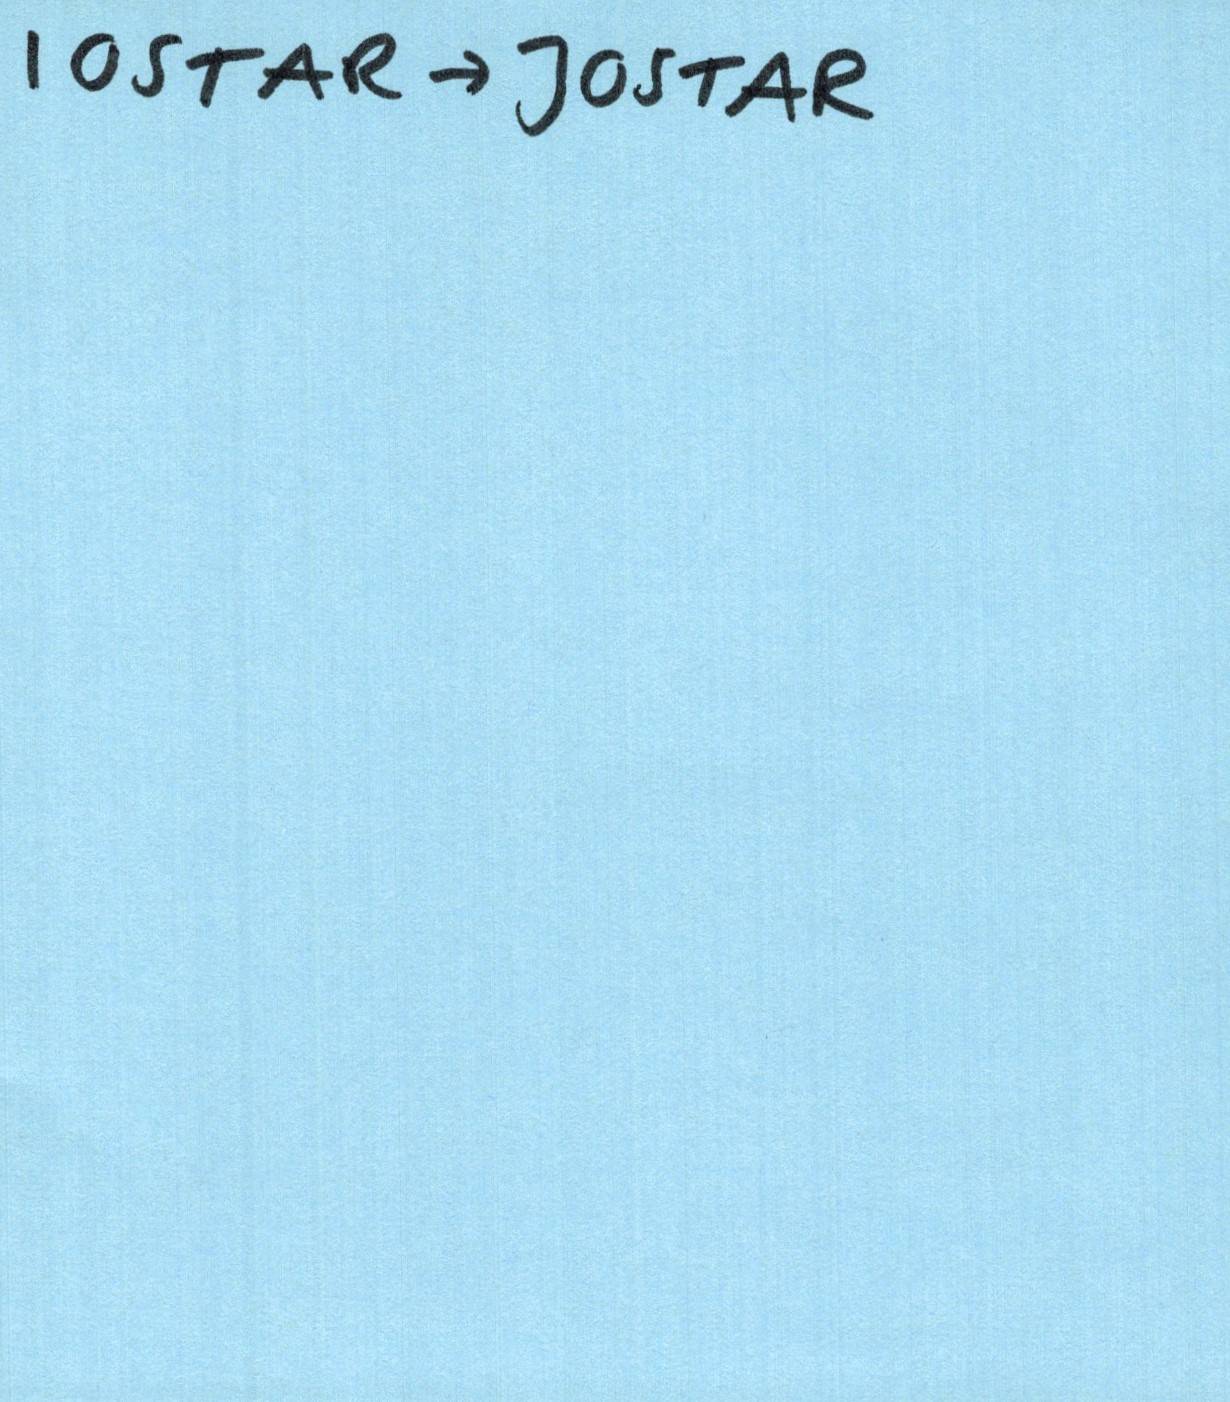 IOSTAR → JOSTAR